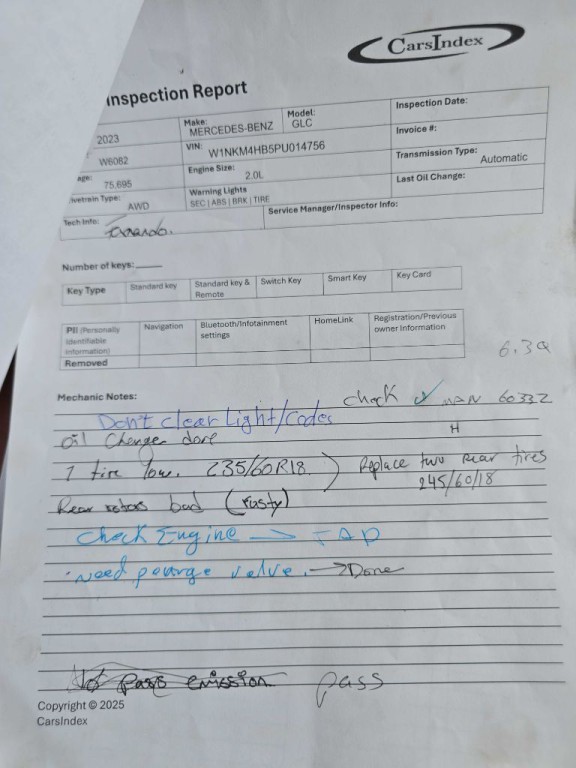 CarsIndex
Inspection Report
2023
Make:
MERCEDES-BENZ
Model:
GLC
Inspection Date:
W6082
VIN:
W1NKM4HB5PU014756
Invoice #:
75,695
Engine Size:
2.0L
Transmission Type:
Automatic
AWD
Warning Lights
SEC | ABS | BRK | TIRE
Last Oil Change:
Tech Info:
Service Manager/Inspector Info:
Number of keys:____
Key Type
Standard key
Standard key & Remote
Switch Key
Smart Key
Key Card
PII (Personally Identifiable Information)
Navigation
Bluetooth/Infotainment settings
HomeLink
Registration/Previous owner Information
Removed
6.3Q
Mechanic Notes:
check
60332
Don't clear Light/Codes
H
oil Change done
1 tire low. 235/60R18 ) Replace two rear tires
245/60/18
Rear rotors bad (rusty)
Check Engine →
need pourge valve. → Done
Not pass emission pass
Copyright © 2025
CarsIndex